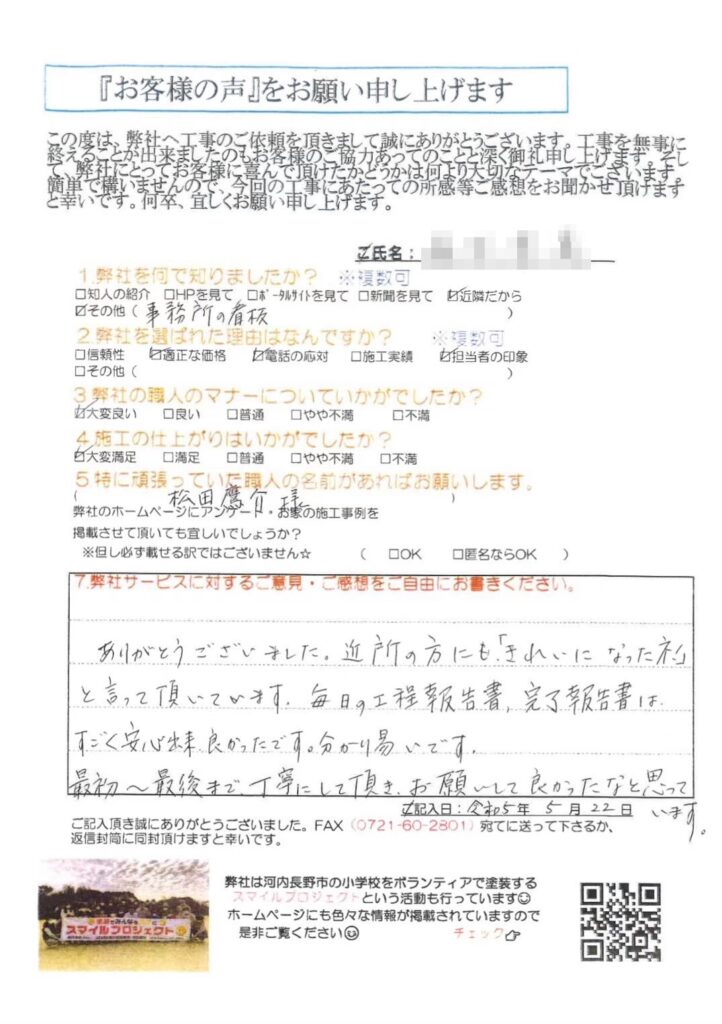 『お客様の声』をお願い申し上げます
この度は、弊社へ工事のご依頼を頂きまして誠にありがとうございます。工事を無事に
終えることが出来ましたのもお客様のご協力あってのことと深く御礼申し上げます。そし
て、弊社にとってお客様に喜んで頂けたかどうかは何より大切なテーマでございます。
簡単で構いませんので、今回の工事にあたっての所感等ご感想をお聞かせ頂けます
と幸いです。何卒、宜しくお願い申し上げます。
☑氏名:
1.弊社を何で知りましたか? ※複数可
□知人の紹介 □HPを見て □ポータルサイトを見て □新聞を見て ☑近隣だから
☑その他( 事務所の看板 )
2.弊社を選ばれた理由はなんですか? ※複数可
□信頼性 ☑適正な価格 ☑電話の応対 □施工実績 ☑担当者の印象
□その他( )
3弊社の職人のマナーについていかがでしたか?
☑大変良い □良い □普通 □やや不満 □不満
4.施工の仕上がりはいかがでしたか?
☑大変満足 □満足 □普通 □やや不満 □不満
5特に頑張っていた職人の名前があればお願いします。
( 松田鷹介 様 )
弊社のホームページにアンケート・お家の施工事例を
掲載させて頂いても宜しいでしょうか?
※但し必ず載せる訳ではございません☆ ( □OK □匿名ならOK )
7.弊社サービスに対するご意見・ご感想をご自由にお書きください。
ありがとうございました。近所の方にも、「きれいになったネ」
と言って頂いています。毎日の工程報告書、完了報告書は
すごく安心出来、良かったです。分かり易いです。
最初〜最後まで、丁寧にして頂き、お願いして良かったなと思って
います。
☑記入日:令和5年 5月 22日
ご記入頂き誠にありがとうございました。FAX(0721-60-2801)宛てに送って下さるか、
返信封筒に同封頂けますと幸いです。
スマイルプロジェクト
弊社は河内長野市の小学校をボランティアで塗装する
スマイルプロジェクトという活動も行っています☺
ホームページにも色々な情報が掲載されていますので
是非ご覧ください☺ チェック👉